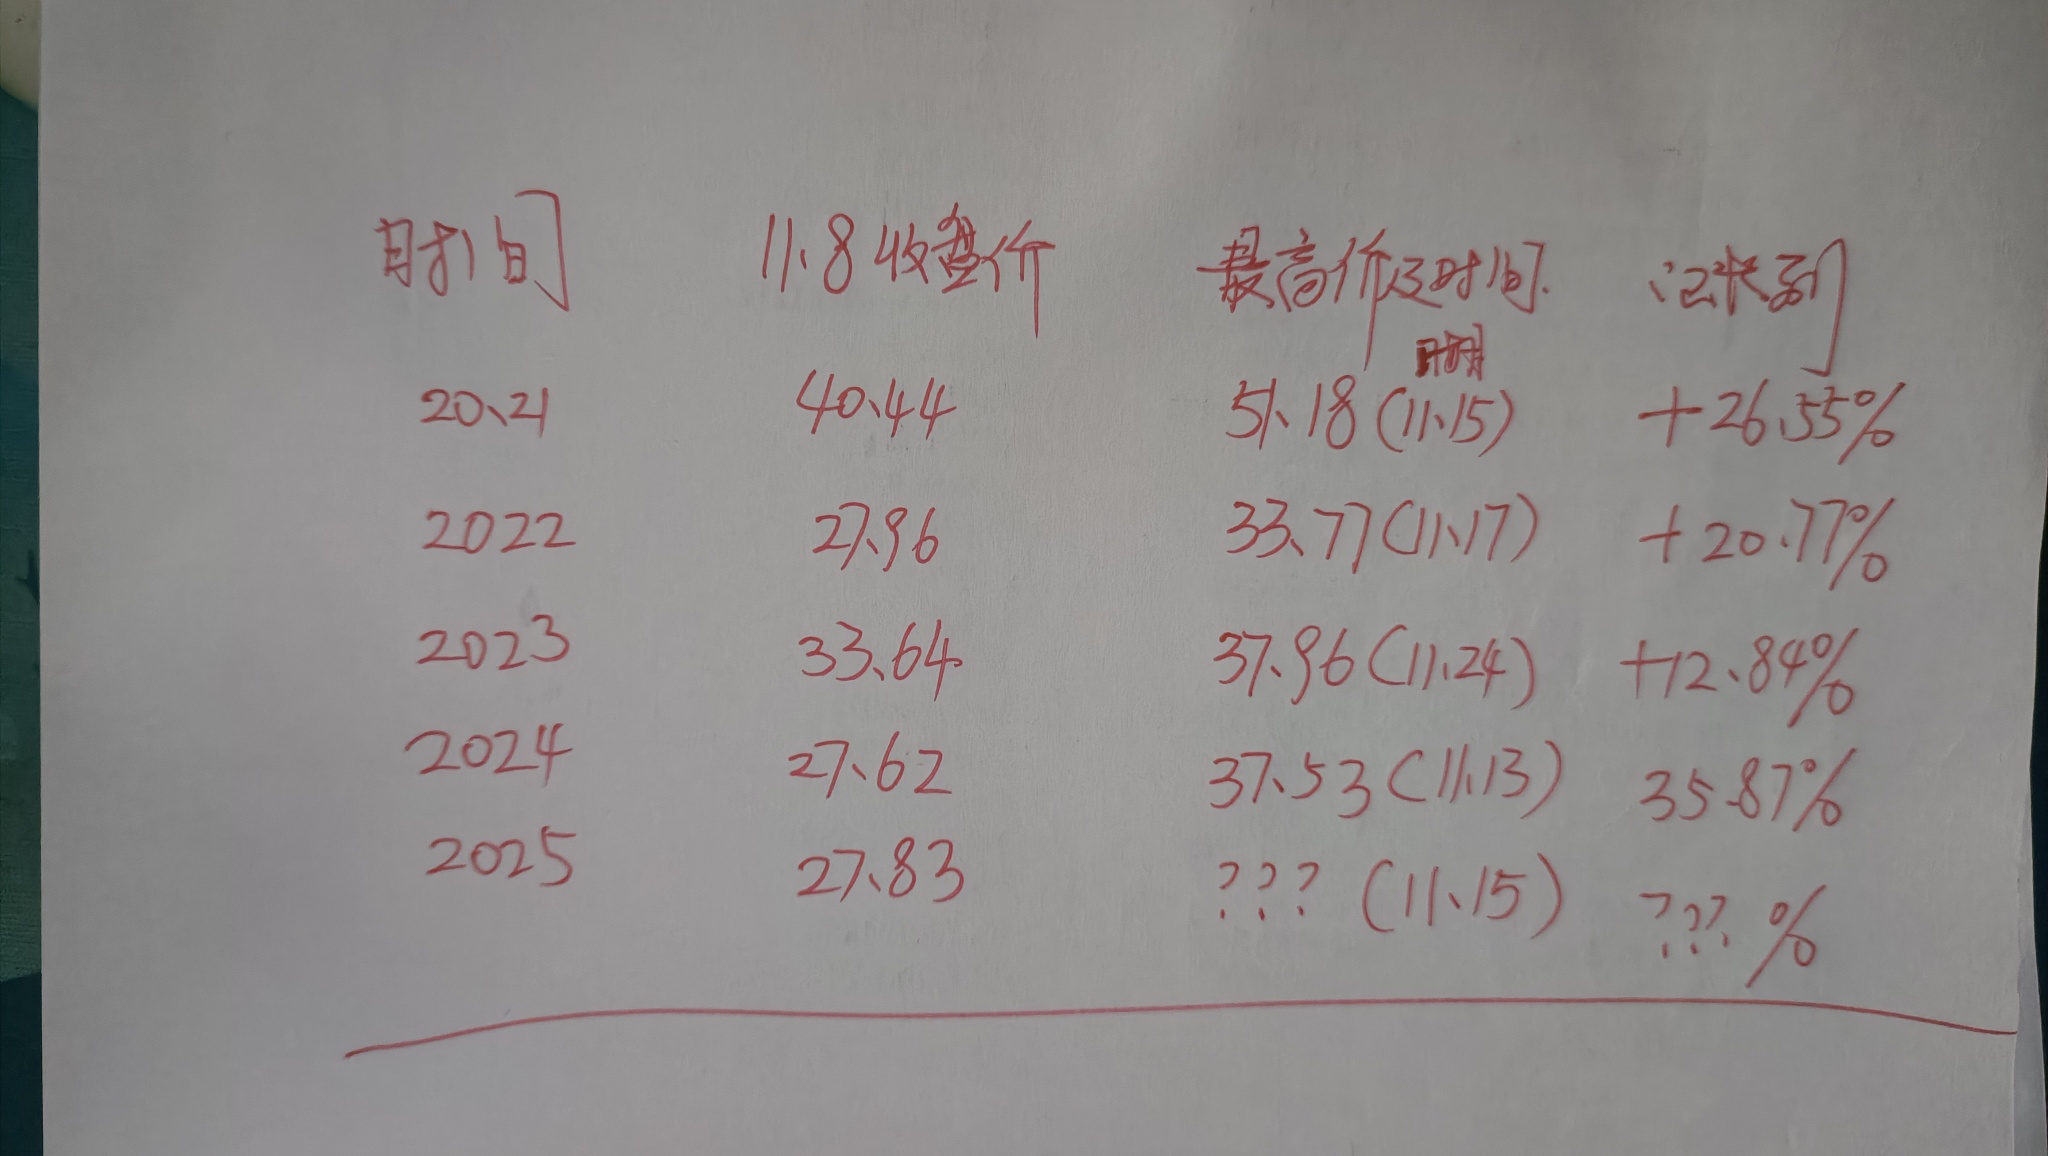 时间 11.8收盘价 最高价及时间 记录到
日期
20.21 40.44 51.18(11.15) +26.55%
2022 27.96 33.77(11.17) +20.77%
2023 33.64 37.96(11.24) +12.84%
2024 27.62 37.53(11.13) 35.87%
2025 27.83 ???(11.15) ???%